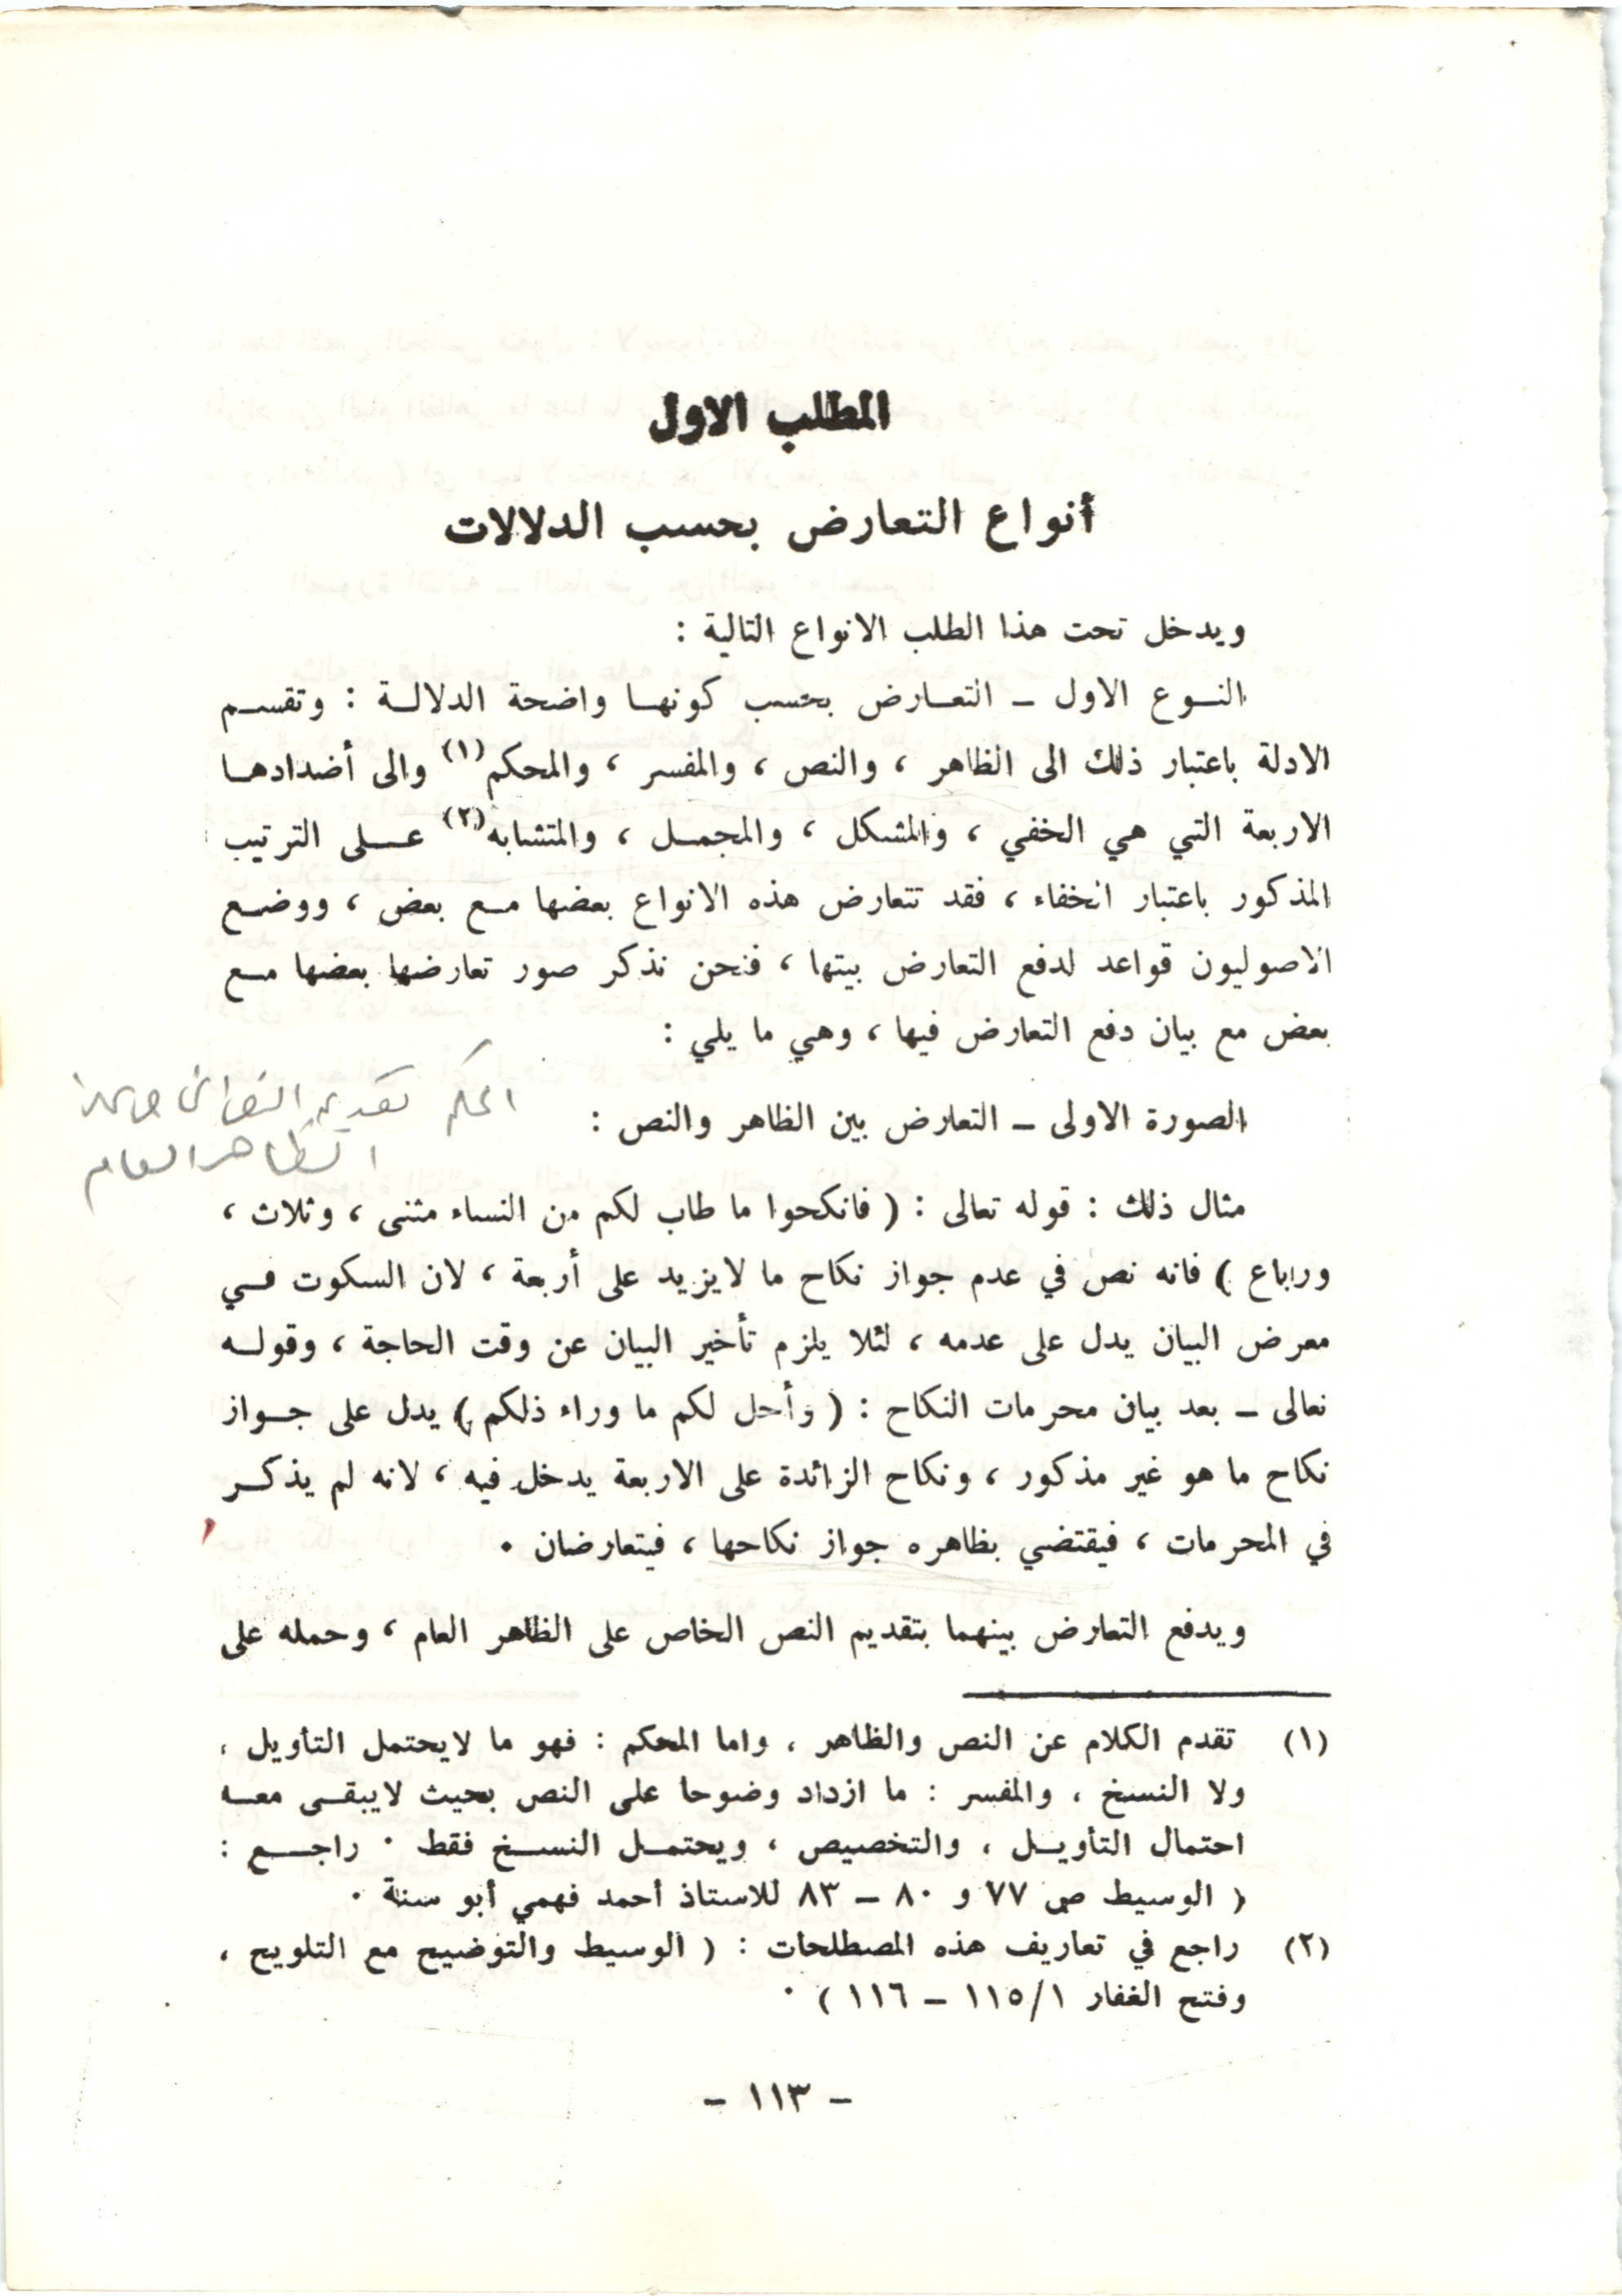 المطلب الاول
أنواع التعارض بحسب الدلالات
ويدخل تحت هذا الطلب الانواع التالية :
النـوع الاول ـ التعـارض بحسب كونهـا واضحة الدلالـة : وتقسـم
الادلة باعتبار ذلك الى الظاهر ، والنص ، والمفسر ، والمحكم(١) والى أضدادهـا
الاربعة التي هي الخفي ، والمشكل ، والمجمـل ، والمتشابه(٢) عـلى الترتيب
المذكور باعتبار انخفاء ، فقد تتعارض هذه الانواع بعضها مـع بعض ، ووضـع
الاصوليون قواعد لدفع التعارض بيتها ، فنحن نذكر صور تعارضها بعضها مـع
بعض مع بيان دفع التعارض فيها ، وهي ما يلي :
الصورة الاولى ـ التعارض بين الظاهر والنص :
الظاهر العام
مثال ذلك : قوله تعالى : ( فانكحوا ما طاب لكم من النساء مثنى ، وثلاث ،
وراباع ) فانه نص في عدم جواز نكاح ما لايزيد على أربعة ، لان السكوت فـي
معرض البيان يدل على عدمه ، لئلا يلزم تأخير البيان عن وقت الحاجة ، وقولـه
نعالى ـ بعد بيان محرمات النكاح : ( وأحل لكم ما وراء ذلكم ) يدل على جـواز
نكاح ما هو غير مذكور ، ونكاح الزائدة على الاربعة يدخل فيه ، لانه لم يذكـر
في المحرمات ، فيقتضي بظاهره جواز نكاحها ، فيتعارضان ٠
ويدفع التعارض بينهما بتقديم النص الخاص على الظاهر العام ، وحمله على
(١) تقدم الكلام عن النص والظاهر ، واما المحكم : فهو ما لايحتمل التأويل ،
ولا النسخ ، والمفسر : ما ازداد وضوحا على النص بحيث لايبقـى معـه
احتمال التأويـل ، والتخصيص ، ويحتمـل النسـخ فقط ٠ راجـع :
( الوسيط ص ٧٧ و ٨٠ ـ ٨٣ للاستاذ أحمد فهمي أبو سنة ٠
(٢) راجع في تعاريف هذه المصطلحات : ( الوسيط والتوضيح مع التلويح ،
وفتح الغفار ١/١١٥ ـ ١١٦ ) ٠
- ١١٣ -